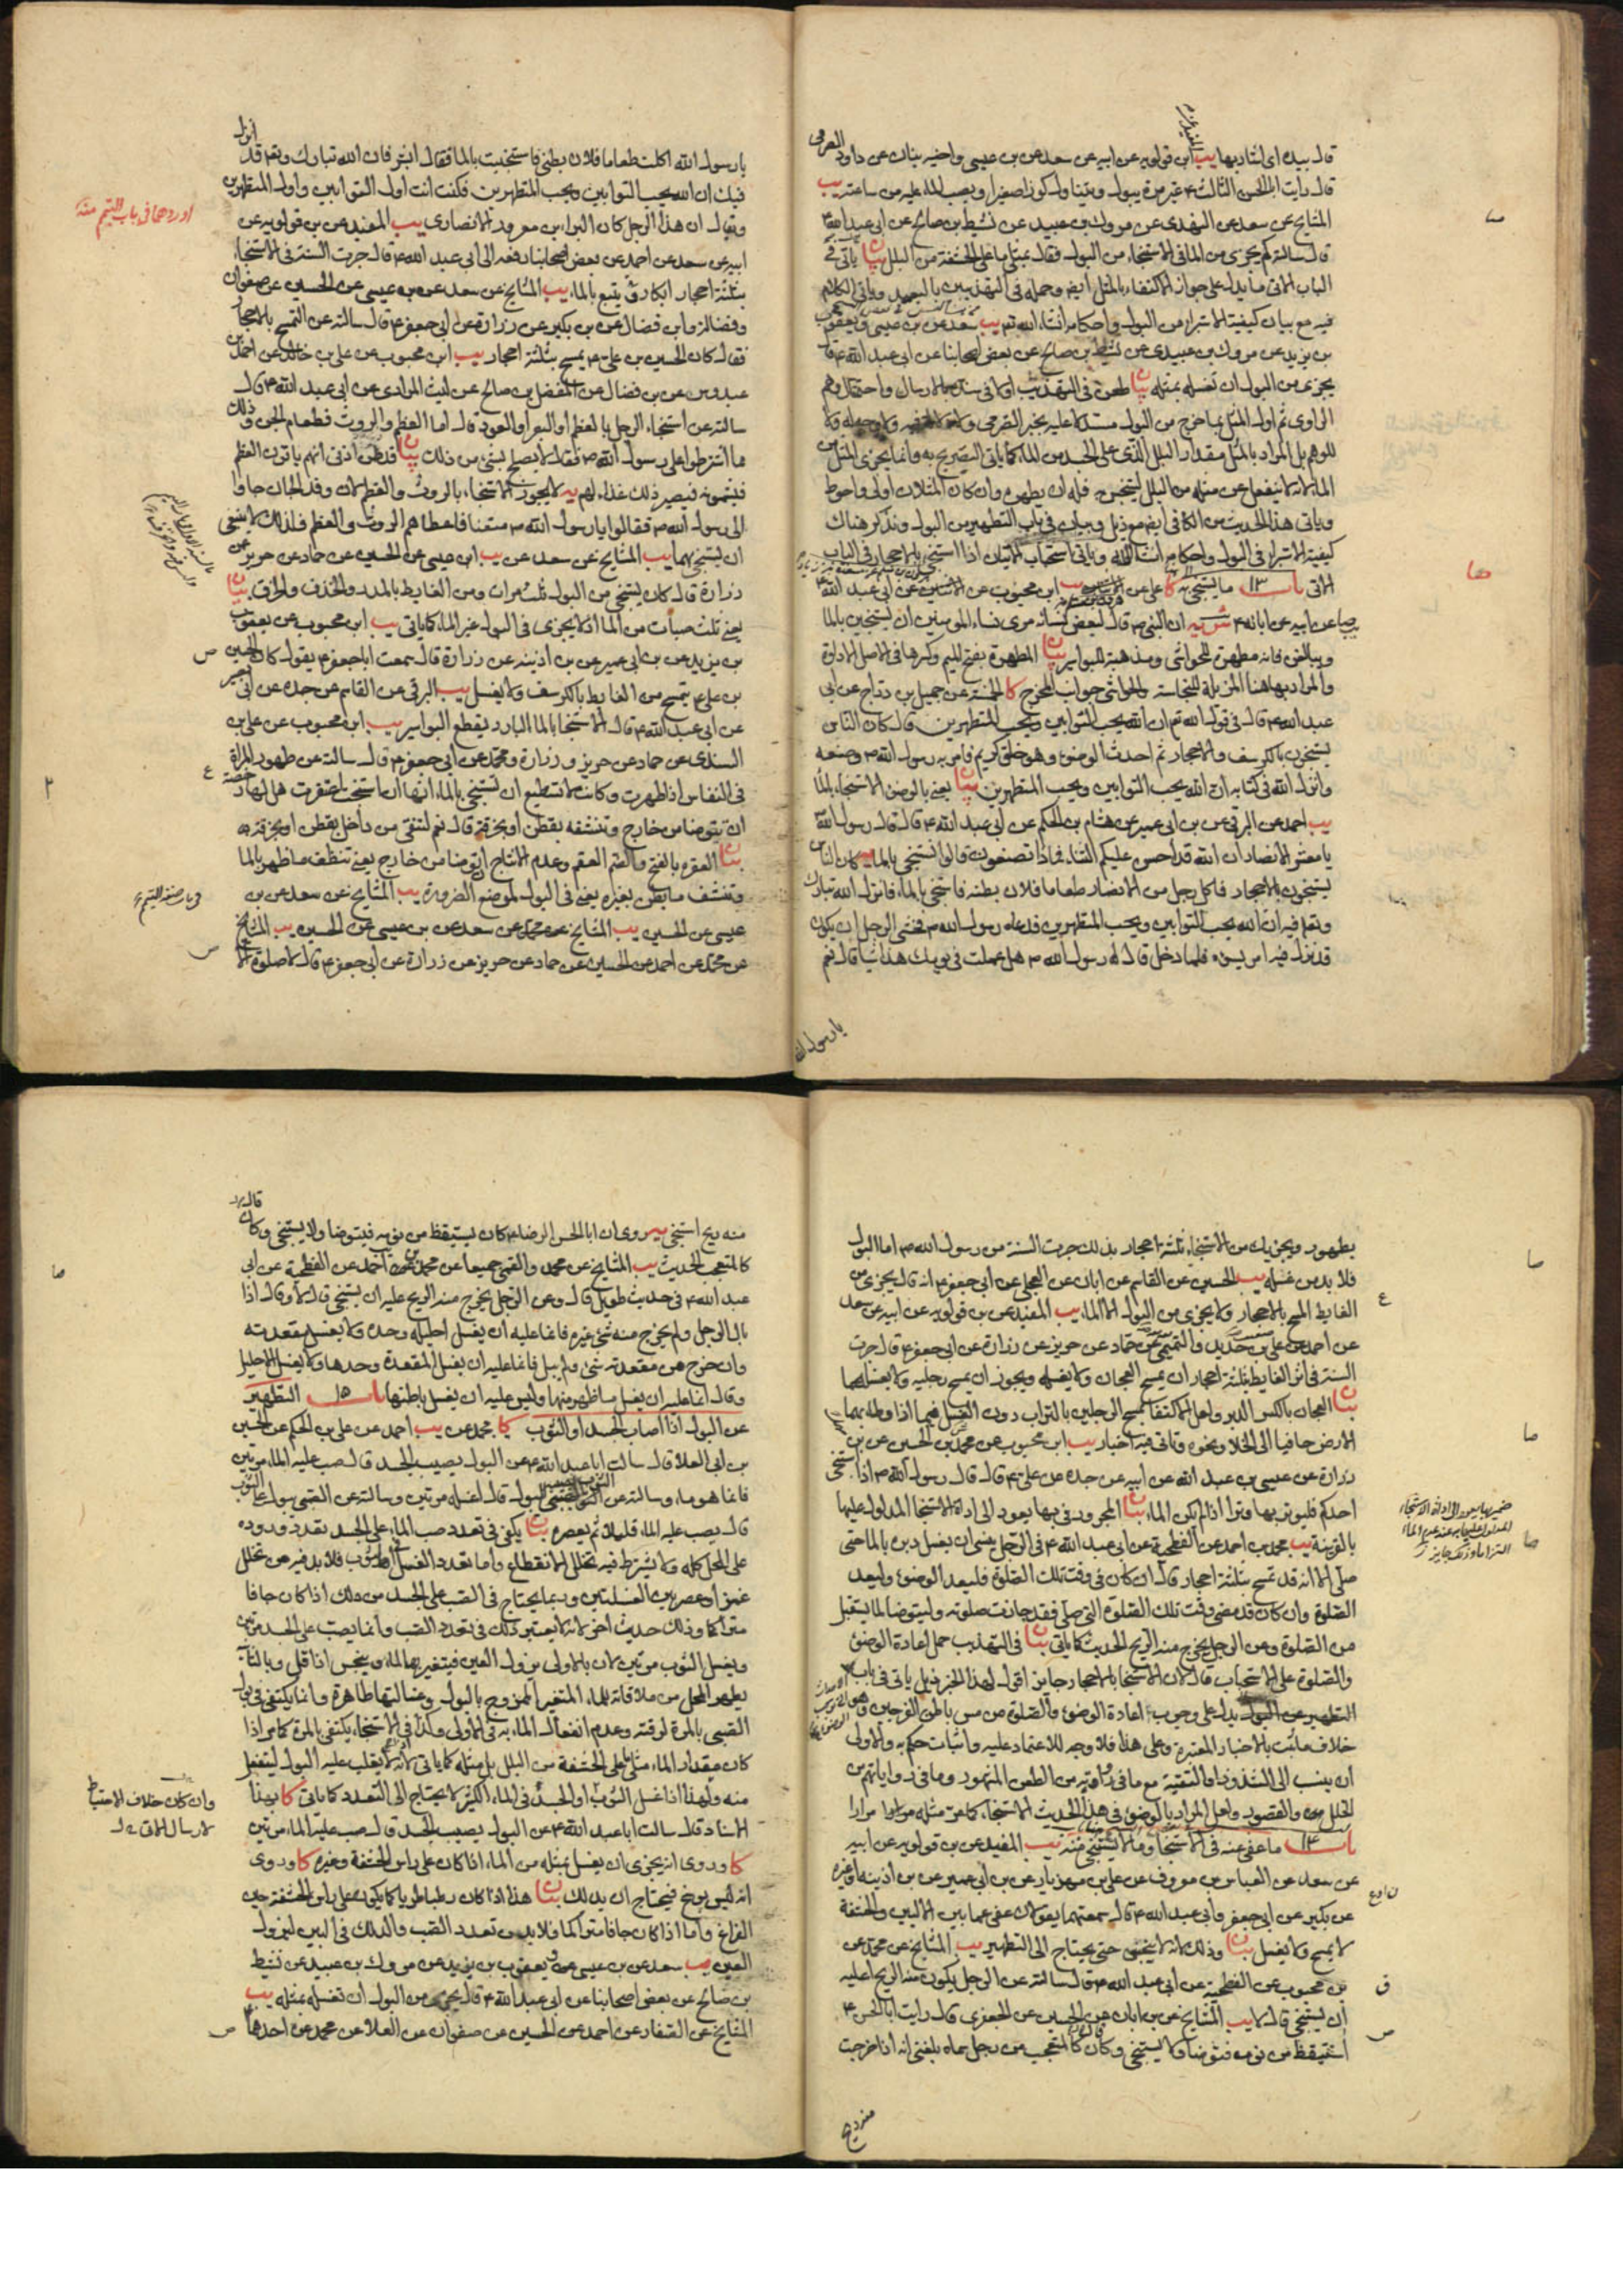 قال بيده اى اشار بها يب ابن قولويه عن ابيه عن سعد عن بن عيسى واخيه بنان عن داود الصرمى
قال رايت ابا الحسن الثالث ع غير مرة يبول ويتناول كوزا صغيرا ويصب الماء عليه من ساعته يب
المشايخ عن سعد عن النهدى عن مروك بن عبيد عن نشيط بن صالح عن ابى عبد الله ع
قال سالته كم يجزى من الماء فى الاستنجاء من البول فقال بمثلى ما على الحشفة من البلل بيان ياتى فى
الباب الاتى ما يدل على جواز الاكتفاء بالمثل ايضا وحمله فى التهذيبين
فيه مع بيان كيفية الاستبراء من البول واحكامه انشاء الله تم يب سعد عن بن عيسى ويعقوب
بن يزيد عن مروك بن عبيد عن نشيط بن صالح عن بعض اصحابنا عن ابى عبد الله ع قال
يجزى من البول ان تغسله بمثله بيان طعن فى التهذيب اولا فى سنده بالارسال واحتمال وهم
الراوى ثم اول المثل بما خرج من البول مستدلا عليه بخبر الصرمى
للوهم بل المراد بالمثل مقدار البلل الذى على الجسد من الماء كما ياتى التصريح به وانما يجزى المثل من
الماء لانه لا ينفعل عن مثله من البلل لينجس فله ان يطهره وان كان المثلان اولى واحوط
وياتى هذا الحديث من الكافى ايضا مع ذيل وبيان فى باب التطهير من البول ونذكر هناك
كيفية الاستبراء فى البول واحكامه انشاء الله وياتى استحباب المثلين اذا استنجى بالاحجار فى الباب
الاتى باب ١٣ ما يستنجى به كا على عن يب ابن محبوب عن الاثنين عن ابى عبد الله ع
عن ابيه عن ابائه ع ش يه ان النبى ص قال لبعض نسائه مرى نساء المومنين ان يستنجين بالماء
ويبالغن فانه مطهرة للحواشى ومذهبة للبواسير بيان المطهرة بفتح الميم وكسرها فى الاصل الاداوة
والمراد بها هنا المزيلة للنجاسة والحواشى جوانب المخرج كا الخمسة عن جميل بن دراج عن ابى
عبد الله ع قال فى قول الله تم ان الله يحب التوابين ويحب المتطهرين قال كان الناس
يستنجون بالكرسف والاحجار ثم احدث الوضوء وهو خلق كريم فامر به رسول الله ص وصنعه
وانزل الله فى كتابه ان الله يحب التوابين ويحب المتطهرين بيان يعنى بالوضوء الاستنجاء بالماء
يب احمد عن البرقى عن بن ابى عمير عن هشام بن الحكم عن ابى عبد الله ع قال قال رسول الله ص
يا معشر الانصار ان الله قد احسن عليكم الثناء فماذا تصنعون قالوا نستنجى بالماء يه كان الناس
يستنجون بالاحجار فاكل رجل من الانصار طعاما فلان بطنه فاستنجى بالماء فانزل الله تبارك
وتعم فيه ان الله يحب التوابين ويحب المتطهرين فدعاه رسول الله ص فخشى الرجل ان يكون
قد نزل فيه امر يسوءه فلما دخل قال له رسول الله ص هل عملت فى يومك هذا شيئا قال نعم
يا رسول الله
يا رسول الله اكلت طعاما فلان بطنى فاستنجيت بالماء فقال ابشر فان الله تبارك وتعم قد انزل
فيك ان الله يحب التوابين ويحب المتطهرين فكنت انت اول التوابين واول المتطهرين
ويقال ان هذا الرجل كان البراء بن معرور الانصارى يب المفيد عن بن قولويه عن
ابيه عن سعد عن احمد عن بعض اصحابنا رفعه الى ابى عبد الله ع قال جرت السنة فى الاستنجاء
بثلثة احجار ابكار ويتبع بالماء يب المشايخ عن سعد عن بن عيسى عن الحسين عن صفوان
وفضالة وابن فضال عن بن بكير عن زرارة عن ابى جعفر ع قال سالته عن التمسح بالاحجار
فقال كان الحسين بن على ع يمسح بثلثة احجار يب ابن محبوب عن على بن خالد عن احمد بن
عبدوس عن بن فضال عن المفضل بن صالح عن ليث المرادى عن ابى عبد الله ع قال
سالته عن استنجاء الرجل بالعظم او البعر او العود قال اما العظم والروث فطعام الجن وذلك
مما اشترطوا على رسول الله ص فقال لا يصلح بشئ من ذلك بيان
فيشمونه فيصير ذلك غذاء لهم يه لا يجوز الاستنجاء بالروث والعظم لان وفد الجان جاوا
الى رسول الله ص فقالوا يا رسول الله ص متعنا فاعطاهم الروث والعظم فلذلك لا ينبغى
ان يستنجى بهما يب المشايخ عن سعد عن يب ابن عيسى عن الحسين عن حماد عن حريز عن
زرارة قال كان يستنجى من البول ثلث مرات ومن الغايط بالمدر والخزف والخرق بيان
يعنى ثلث صبات من الماء اذ لا يجزى فى البول غير الماء كما ياتى يب ابن محبوب عن يعقوب
بن يزيد عن بن ابى عمير عن بن اذينه عن زرارة قال سمعت ابا جعفر ع يقول كان الحسين
بن على ع يتمسح من الغايط بالكرسف ولا يغسل يب البرقى عن القاسم عن جده عن ابى بصير
عن ابى عبد الله ع قال الاستنجاء بالماء البارد يقطع البواسير يب ابن محبوب عن على بن
السندى عن حماد عن حريز وزرارة ومحمد عن ابى جعفر ع قال سالته عن طهور المراة
فى النفاس اذا طهرت وكانت لا تستطيع ان تستنجى بالماء انها ان استنجت اعتقرت هل لها رخصة
ان تتوضا من خارج وتنشفه بقطن او بخرقة قال نعم لتنقى من داخل بقطن او بخرقة
بيان العقره بالفتح والضم العقم وعدم الانتاج ان تتوضا من خارج يعنى تنظف ما ظهر بالماء
وتنشف ما بطن بغيره يعنى فى البول لموضع الضرورة يب المشايخ عن سعد عن بن
عيسى عن الحسين يب المشايخ عن محمد عن سعد عن بن عيسى عن الحسين يب المشايخ
عن محمد عن احمد عن الحسين عن حماد عن حريز عن زرارة عن ابى جعفر ع قال لا صلوة الا
اوردهما فى باب التيمم منه
بطهور ويجزيك من الاستنجاء ثلثة احجار بذلك جرت السنة من رسول الله ص اما البول
فلا بد من غسله يب الحسين عن القاسم عن ابان عن العجلى عن ابى جعفر ع انه قال يجزى من
الغايط المسح بالاحجار ولا يجزى من البول الا الماء يب المفيد عن بن قولويه عن ابيه عن سعد
عن احمد عن على بن حديد والتميمى عن حماد عن حريز عن زرارة عن ابى جعفر ع قال جرت
السنة فى اثر الغايط بثلثة احجار ان يمسح العجان ولا يغسله ويجوز ان يمسح رجليه ولا يغسلهما
بيان العجان بالكسر الدبر ولعل الاكتفاء بمسح الرجلين بالتراب دون الغسل فيما اذا وطئ بهما
الارض حافيا الى الخلا ونحوه وتاتى فيه اخبار يب ابن محبوب عن محمد بن الحسين عن بن
زرارة عن عيسى بن عبد الله عن ابيه عن جده عن على ع قال قال رسول الله ص اذا استنجى
احدكم فليوتر بها وترا اذا لم يكن الماء بيان المجرور فى بها يعود الى اداة الاستنجاء المدلول عليها
بالقرينة يب محمد بن احمد عن الفطحية عن ابى عبد الله ع فى الرجل ينسى ان يغسل دبره بالماء حتى
صلى الا انه قد تمسح بثلثة احجار قال ان كان فى وقت تلك الصلوة فليعد الوضوء وليعد
الصلوة وان كان قد مضى وقت تلك الصلوة التى صلى فقد جازت صلوته وليتوضا لما يستقبل
من الصلوة وعن الرجل يخرج منه الريح الحديث كما ياتى بيان فى التهذيب حمل اعادة الوضوء
والصلوة على الاستحباب قال لان الاستنجاء بالاحجار جايز اقول لهذا الخبر ذيل ياتى فى باب
التطهير من البول يدل على وجوب اعادة الوضوء والصلوة من مس باطن الفرجين وهو
خلاف ما ثبت بالاخبار المعتبرة وعلى هذا فلا وجه للاعتماد عليه واثبات حكم به والاولى
ان ينسب الى الشذوذ او التقية مع ما فى رواته من الطعن المشهور وما فى رواياتهم من
الخلل والقصور ولعل المراد بالوضوء فى هذا الحديث الاستنجاء كما مر مثله مرارا
باب ١٤ ما عفى عنه فى الاستنجاء وما لا يستنجى منه يب المفيد عن بن قولويه عن ابيه
عن سعد عن العباس بن معروف عن على بن مهزيار عن بن ابى عمير عن بن اذينه وغيره
عن بكير عن ابى جعفر وابى عبد الله ع قال سمعتهما يقولان عفى عما بين الاليين والحشفة
لا يمسح ولا يغسل بيان وذلك لانه لا ينجس حتى يحتاج الى التطهير يب المشايخ عن محمد عن
بن محبوب عن الفطحية عن ابى عبد الله ع قال سالته عن الرجل يكون منه الريح اعليه
ان يستنجى قال لا يب المشايخ عن بن ابان عن الحسين عن الجعفرى قال رايت ابا الحسن ع
استيقظ من نومه فتوضا ولا يستنجى وقال كالمتعجب من رجل سماه بلغنى انه اذا خرجت
منه ريح
منه ريح استنجى يه روى ان ابا الحسن الرضا ع كان يستيقظ من نومه فيتوضا ولا يستنجى وقال
كالمتعجب الحديث يب المشايخ عن محمد والقمى جميعا عن محمد بن احمد عن الفطحية عن ابى
عبد الله ع فى حديث طويل قال وعن الرجل يخرج منه الريح عليه ان يستنجى قال لا وقال اذا
بال الرجل ولم يخرج منه شئ غيره فانما عليه ان يغسل احليله وحده ولا يغسل مقعدته
وان خرج من مقعدته شئ ولم يبل فانما عليه ان يغسل المقعدة وحدها ولا يغسل الاحليل
وقال انما عليه ان يغسل ما ظهر منها وليس عليه ان يغسل باطنها باب ١٥ التطهير
عن البول اذا اصاب الجسد او الثوب كا محمد عن يب احمد عن على بن الحكم عن الحسين
بن ابى العلا قال سالت ابا عبد الله ع عن البول يصيب الجسد قال صب عليه الماء مرتين
فانما هو ماء وسالته عن الثوب يصيبه البول قال اغسله مرتين وسالته عن الصبى يبول على الثوب
قال يصب عليه الماء قليلا ثم يعصره بيان يكفى فى تعدد صب الماء على الجسد تعدد وروده
على المحل كله ولا يشترط فيه تخلل الانقطاع واما تعدد الغسل للثوب فلا بد فيه من تخلل
عصر بين الغسلتين وربما يحتاج فى الصب على الجسد من دلك اذا كان جافا
ويغسل الثوب مرتين لان بالاولى يزول العين فيتغير بها الماء وينجس اذا قل وبالثانية
يطهر المحل من ملاقاته للماء المتغير الممزوج بالبول وغسالتها طاهرة وانما يكتفى فى بول
الصبى بالمرة لرقته وعدم انفعال الماء به فى الاولى وكذا فى الاستنجاء يكتفى بالمرة كما مر اذا
كان مقدار الماء مثلى ما على الحشفة من البلل بل مثله كما ياتى لانه لا يغلب عليه البول لينفعل
منه ولهذا اذا غسل الثوب او الجسد فى الماء الكثير لا يحتاج الى التعدد كما ياتى كا بهذا
الاسناد قال سالت ابا عبد الله ع عن البول يصيب الجسد قال صب عليه الماء مرتين
كا وروى انه يجزى ان يغسل بمثله من الماء اذا كان على راس الحشفة وغيره كا وروى
انه ليس بوسخ فيحتاج ان يدلك بيان هذا اذا كان رطبا طريا كما يكون على راس الحشفة حين
الفراغ واما اذا كان جافا متراكما فلا بد من تعدد الصب والدلك فى البين ليزول
العين يب سعد عن بن عيسى ويعقوب بن يزيد عن مروك بن عبيد عن نشيط
بن صالح عن بعض اصحابنا عن ابى عبد الله ع قال يجزى من البول ان تغسله بمثله يب
المشايخ عن الصفار عن احمد عن الحسين عن صفوان عن العلا عن محمد عن احدهما
وان كان خلاف الاحتياط